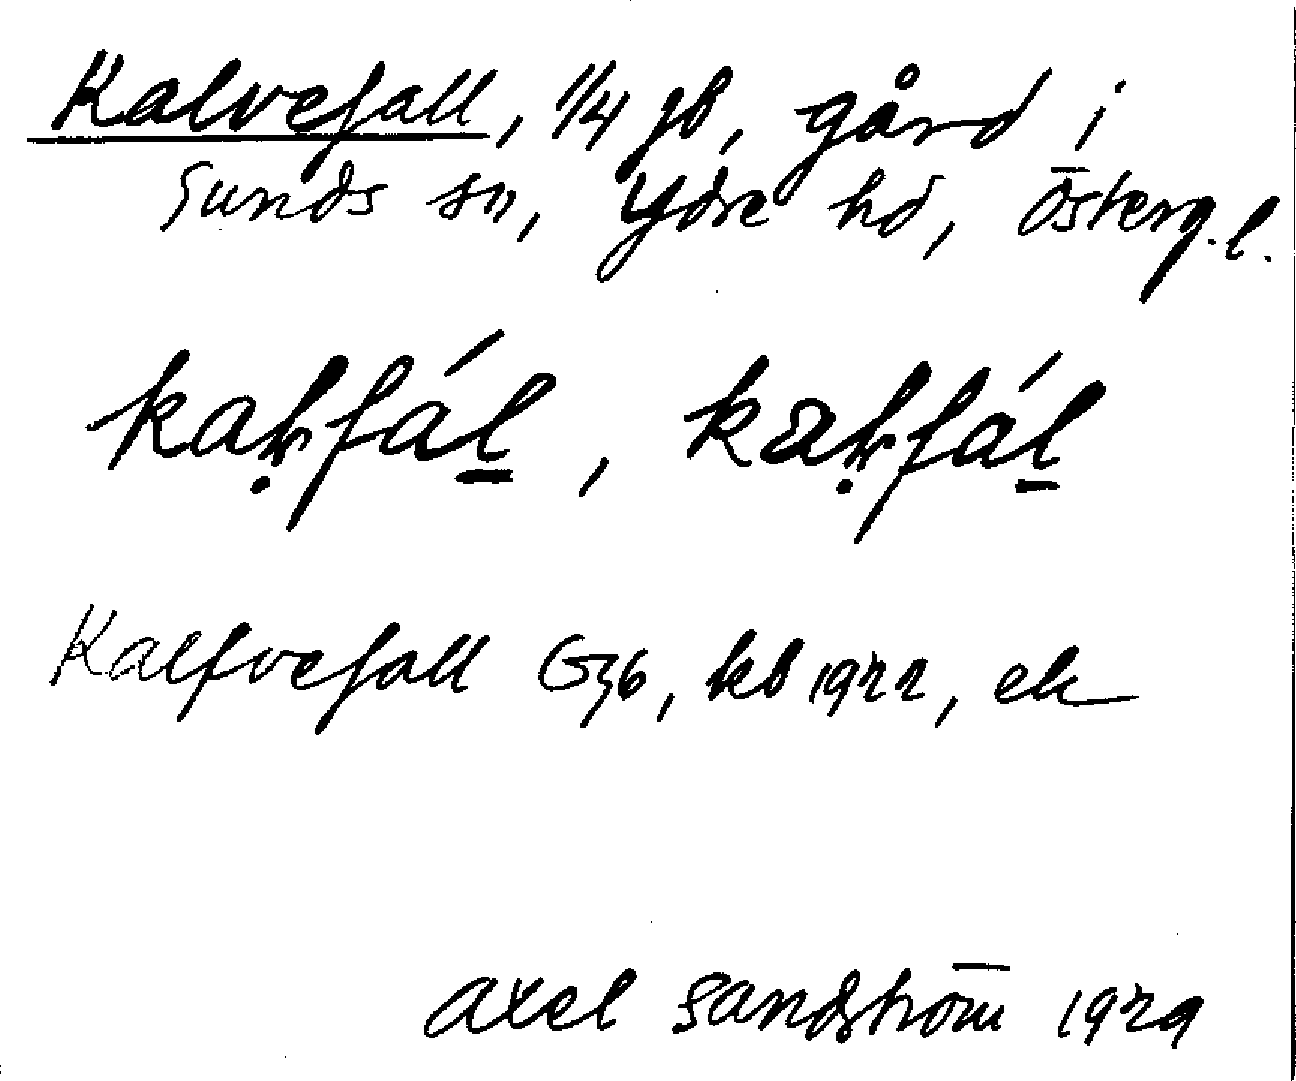 Kalvefall, 1/4 gb, gård i
Sunds sn, Ydre hd, Österg.l.
Kalfvefall G36, kb 1922, ek
Axel Sandström 1929